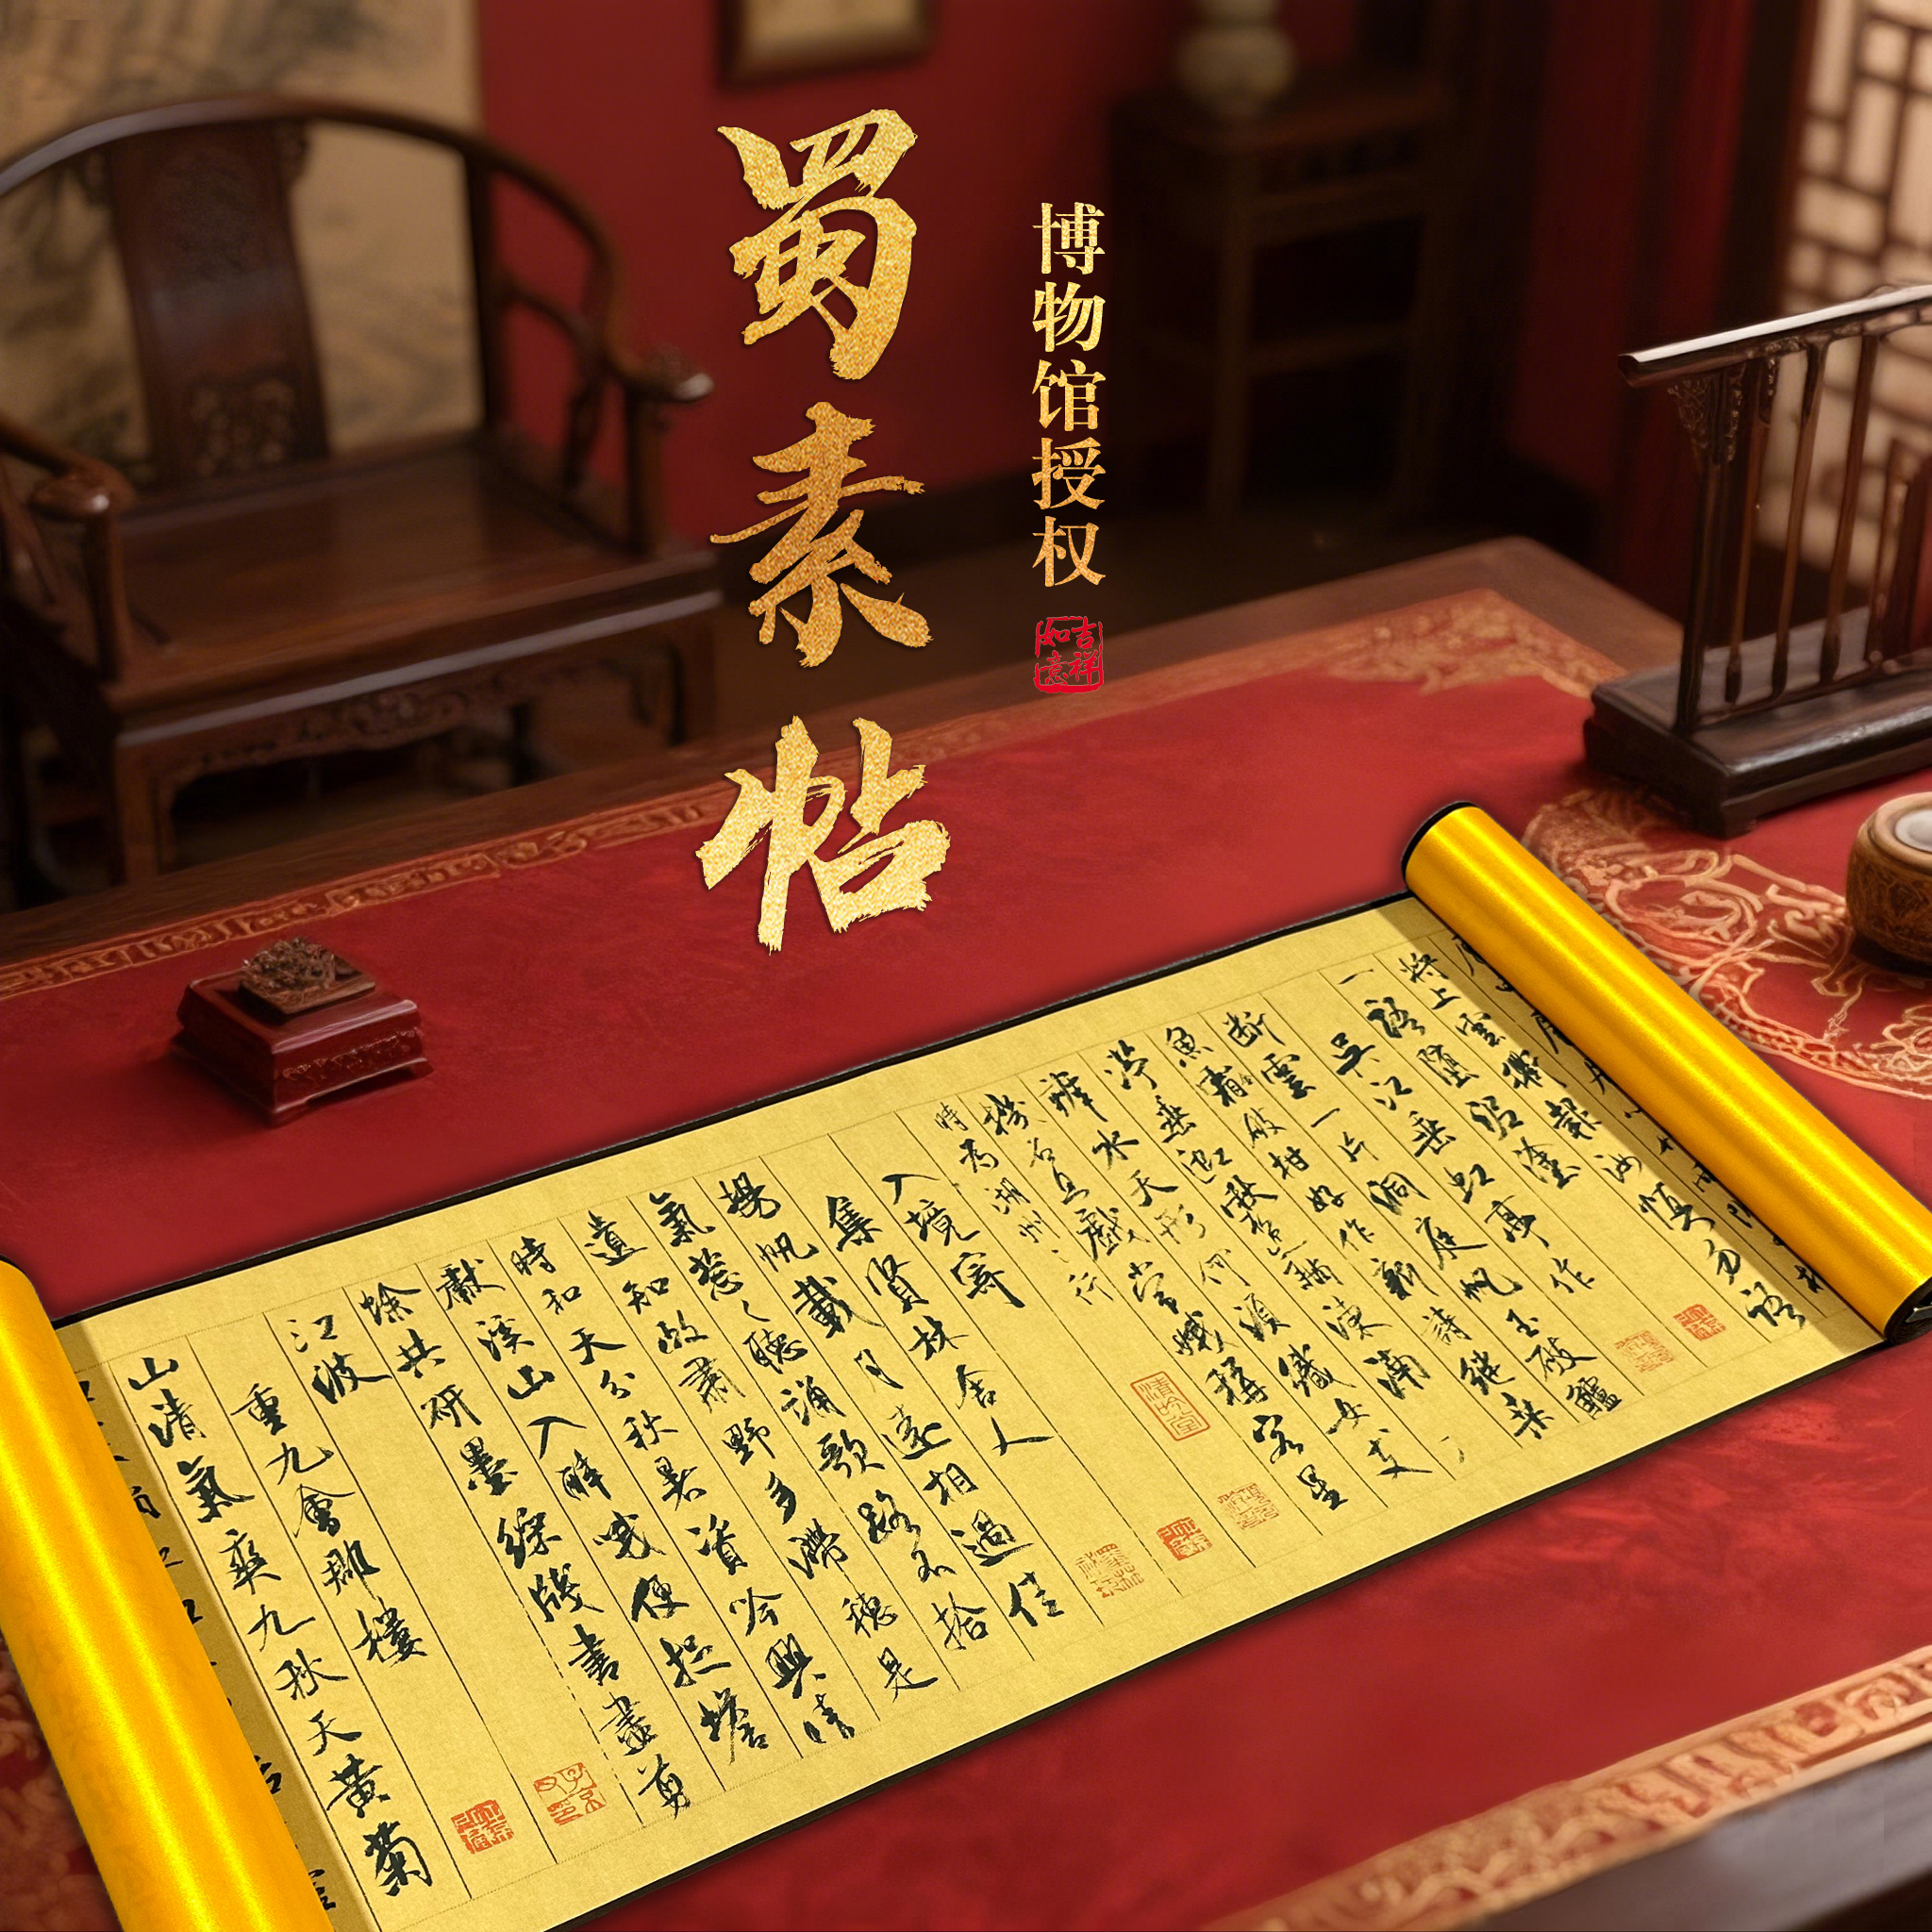 蜀素帖
博物馆授权
吉祥如意
將上雲衢報汝慎勿語
一語墮泥塗
吳江垂虹亭作
斷雲一片洞庭帆玉破鱸
魚霜破柑好作新詩繼桑
苧垂虹秋色滿東南
辨水天形何須織女支
機石且戲常娥稱客星
時為湖州之行
入境寄
集賢林舍人
揚帆載月遠相過佳
氣葱々聽誦歌路不拾
遺知政肅野多滯穗是
時和天分秋暑資吟興晴
獻溪山入醉哦便捉蟾
蜍共研墨綵牋書盡剪
江波
重九會郡樓
山清氣爽九秋天黃菊